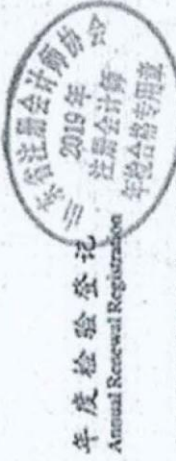 年度检验登记
Annual Renewal Registration
山东省注册会计师协会
2019年
注册会计师
年检合格专用章